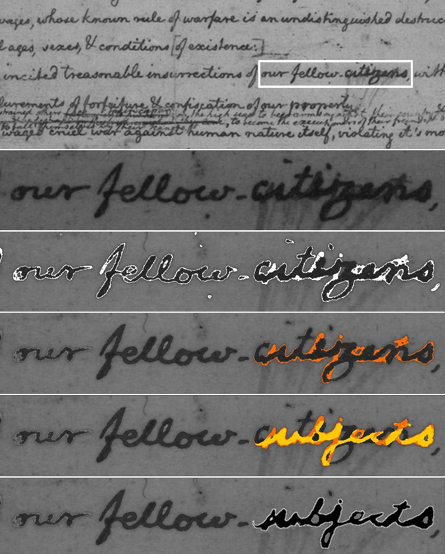 wages, whose known rule of warfare is an undistinguished destruc
l ages, sexes, & conditions [of existence:]
incited treasonable insurrections of our fellow-citizens, with
urements of forfeiture & confiscation of our property
wages cruel war against human nature itself, violating it's mo
our fellow-citizens,
our fellow-citizens,
our fellow-citizens,
our fellow-subjects
our fellow-subjects,